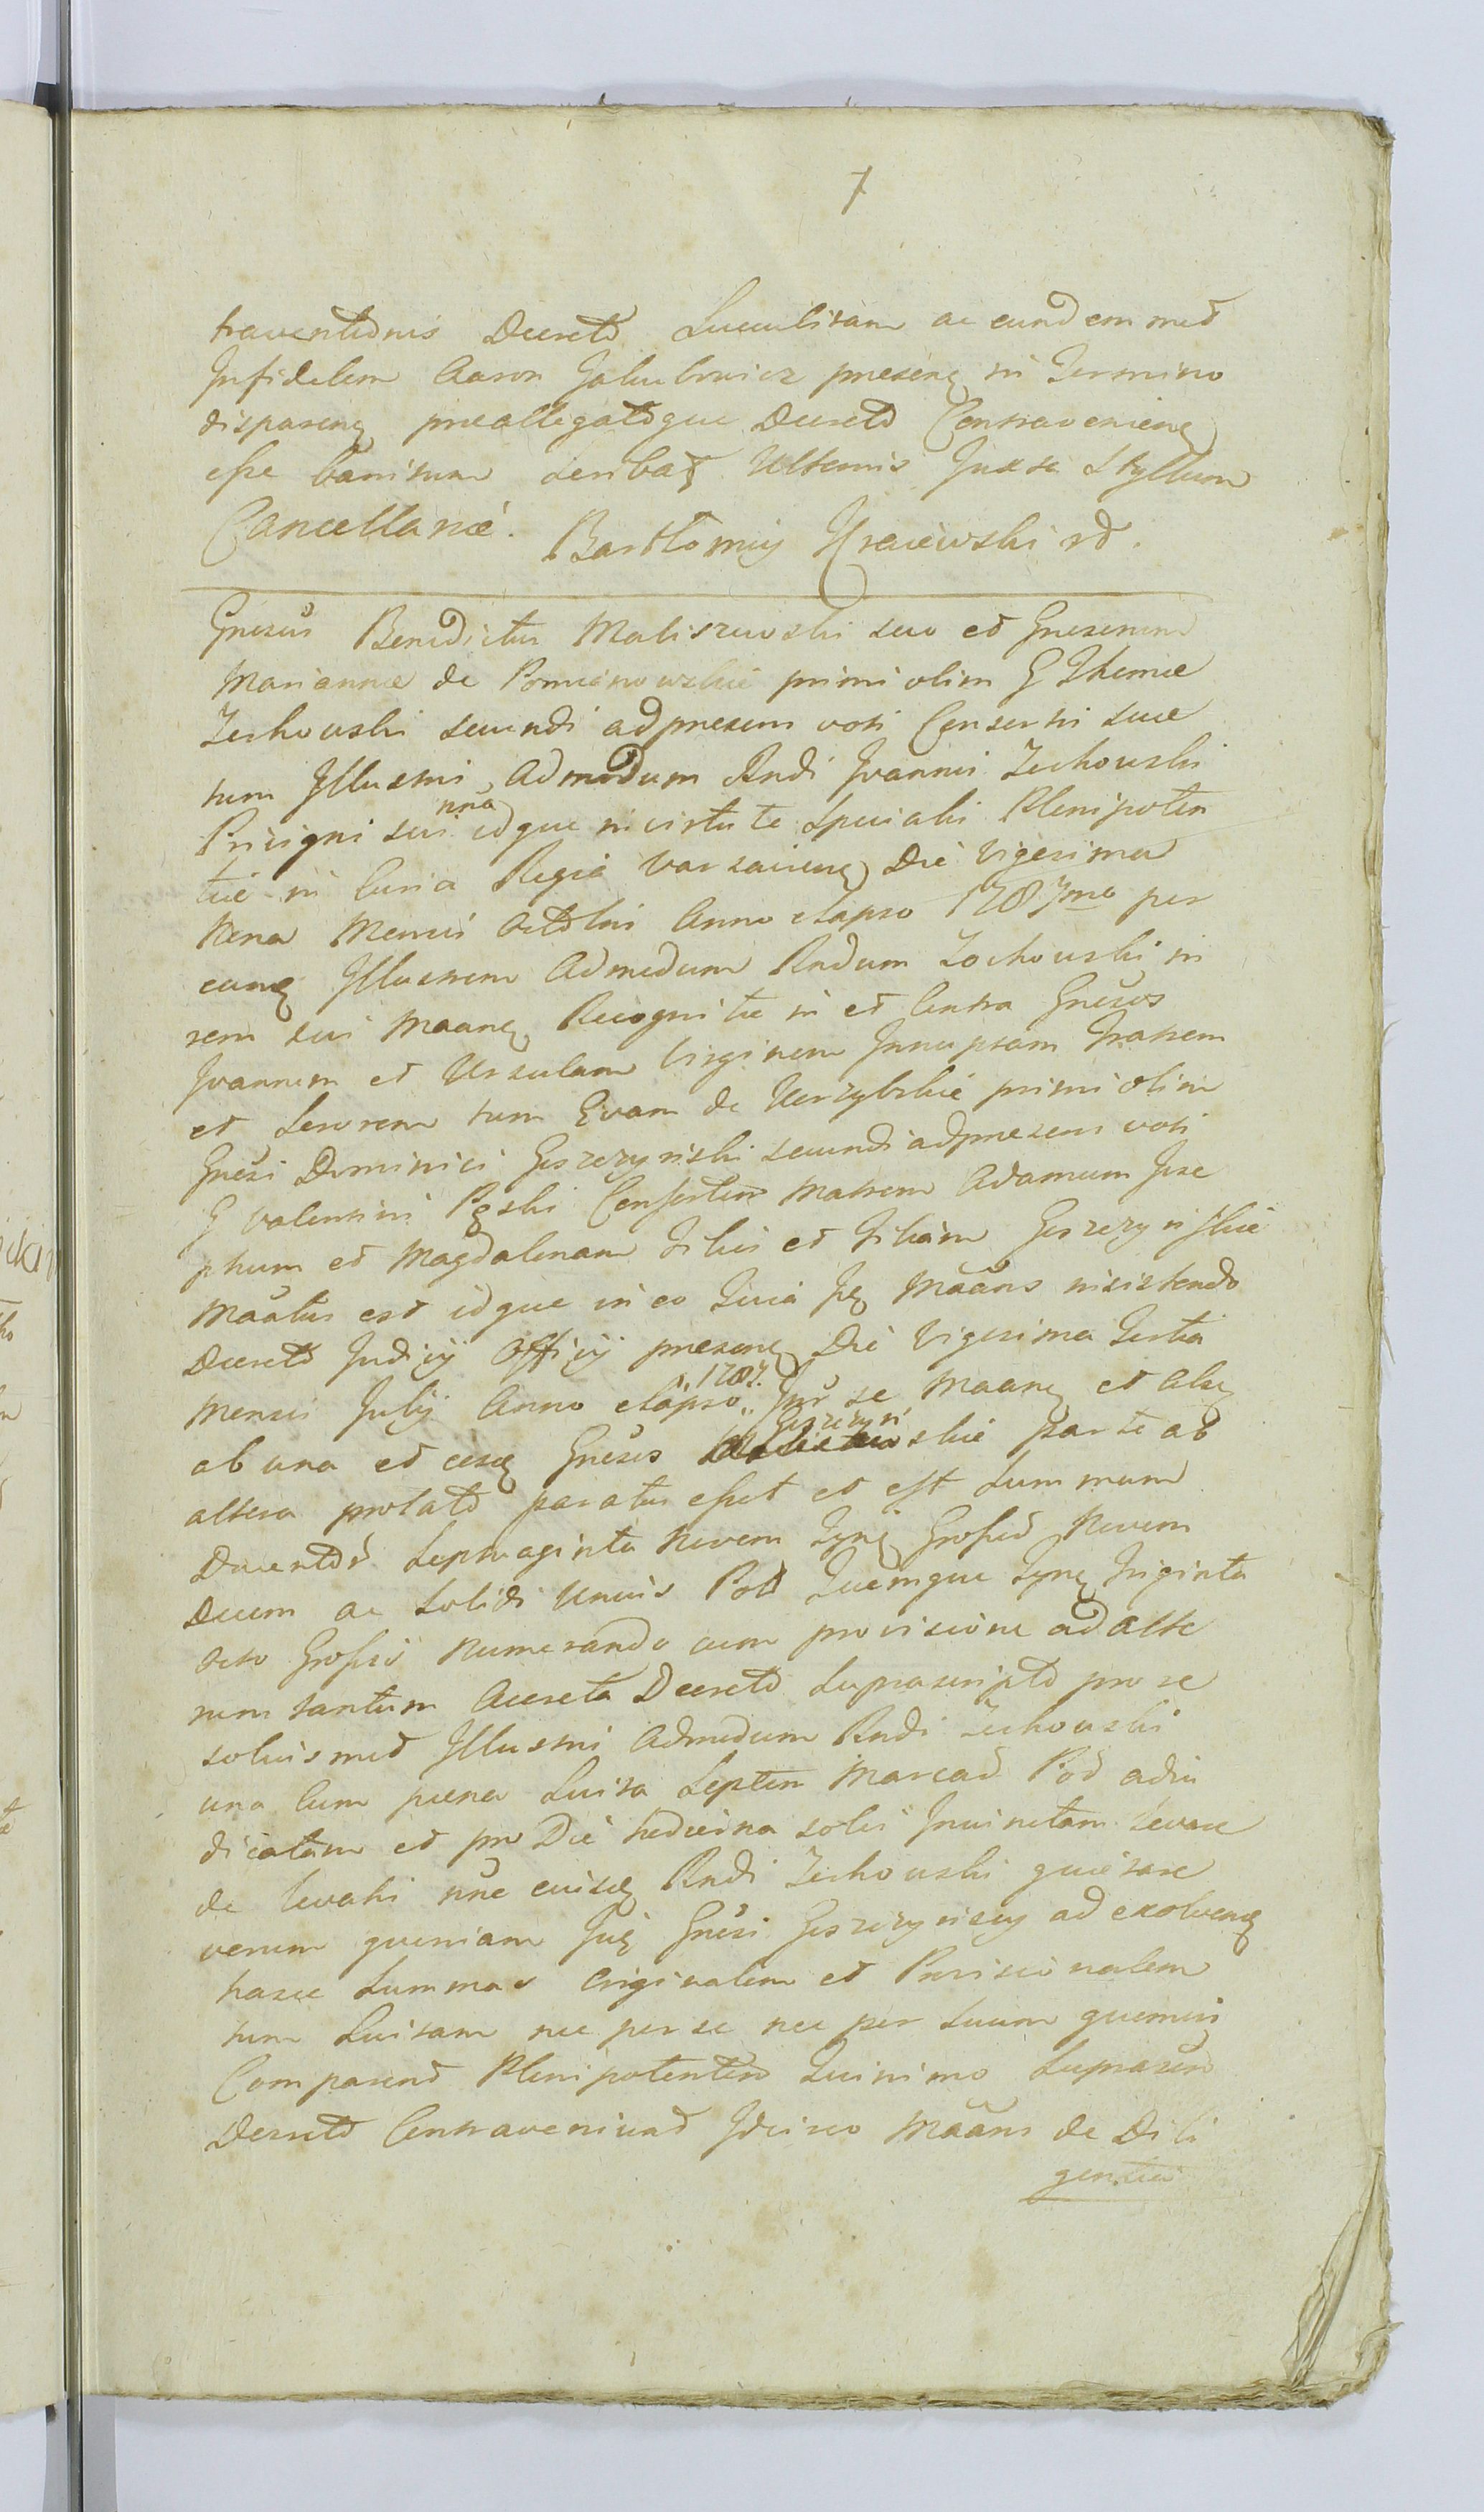 7
traventionis Decreto Luculitam ac eundem med
Infidelem Aaron Jakubowicz presene in Termino
disparene preallegatoque Decreto Contraveniene
esse banitum scribat Ulterius Juxta Styllum
Cancellariæ. Bartłomiy Kraiewski
Gnesus Benedictus Maliszewski suo et Gnesenim
Mariannæ de primi olim G Thomæ
Zochowski secundi adpresens voti Consortis suæ
tum Illustris Admodum Rndi Joannis Zochowski
Privigni sui nnō idque in virtute specialis Plenipoten
tiæ in Curia Regia Varsaviene Die Vigesima
Nona Mensis Octobris Anno elapso 1787mo per
eune Illustrem Admodum Rndum Zochowski in
rem sui Maane Recognitæ in et Contra Gnesos
Joannem et Ursulam Virginem Innuptam Fratrem
et Sororem tum Evam de primi olim
Gnesi Dominici Goszczynski secundi adpresens voti
G Valentini Consortem Matrem Adamum Jose
phum et Magdalenam Filios et Filiam Goszczynskie
Maatus est idque in eo Quia Maans insistendo
Decreto Judicij Officij presene Die Vigesima Tertia
Mensis Julij Anno elapso 1787. se Maane et
ab una et Gnesos Goszczyń skie parte ab
altera prolato paratus esset et est Summam
Ducentos Septuaginta Novem Grossos Novem
Decem ac Solidi Unius Pol Quemque Triginta
octo Grossis Numerando cum provisione ad alte
rum tantum Accreta Decreto suprascripto pro se
solius med Illustris Admodum Rndi Zochowski
una Cum pœna Luita Septem Marcad Pod adiu
dicatam et pro Die hodierna solvi Iniunctam Levare
de Levati nñe Rndi Zochowski quietare
verum quoniam Gnesi Goszczynscy ad exolvene
hasce Summas Originalem et Provisionalem
tum Luitam nec per se nec per suum quemvis
Comparend Plenipotentem Quinimo
Decreto Contraveniund Idcirco Maans de Dili
gentia